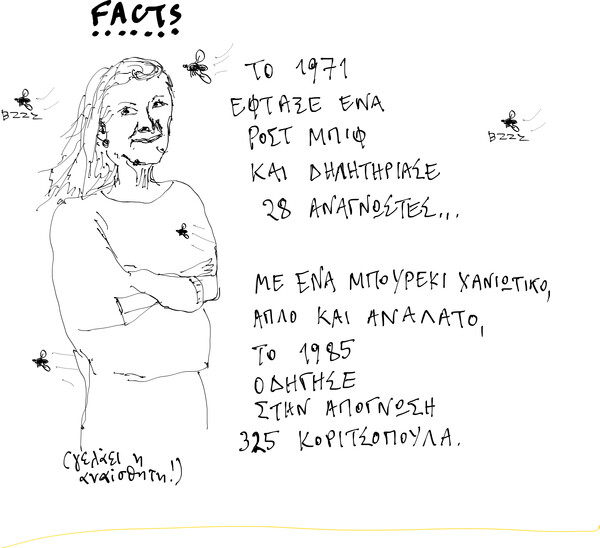 FACTS
ΤΟ 1971
ΕΦΤΑΞΕ ΕΝΑ
ΡΟΣΤ ΜΠΙΦ
ΚΑΙ ΔΗΛΗΤΗΡΙΑΣΕ
28 ΑΝΑΓΝΩΣΤΕΣ...
BZZZ
BZZZ
ΜΕ ΕΝΑ ΜΠΟΥΡΕΚΙ ΧΑΝΙΩΤΙΚΟ,
ΑΠΛΟ ΚΑΙ ΑΝΑΛΑΤΟ,
ΤΟ 1985
ΟΔΗΓΗΣΕ
ΣΤΗΝ ΑΠΟΓΝΩΣΗ
325 ΚΟΡΙΤΣΟΠΟΥΛΑ.
(γελάει η
αναίσθητη!)